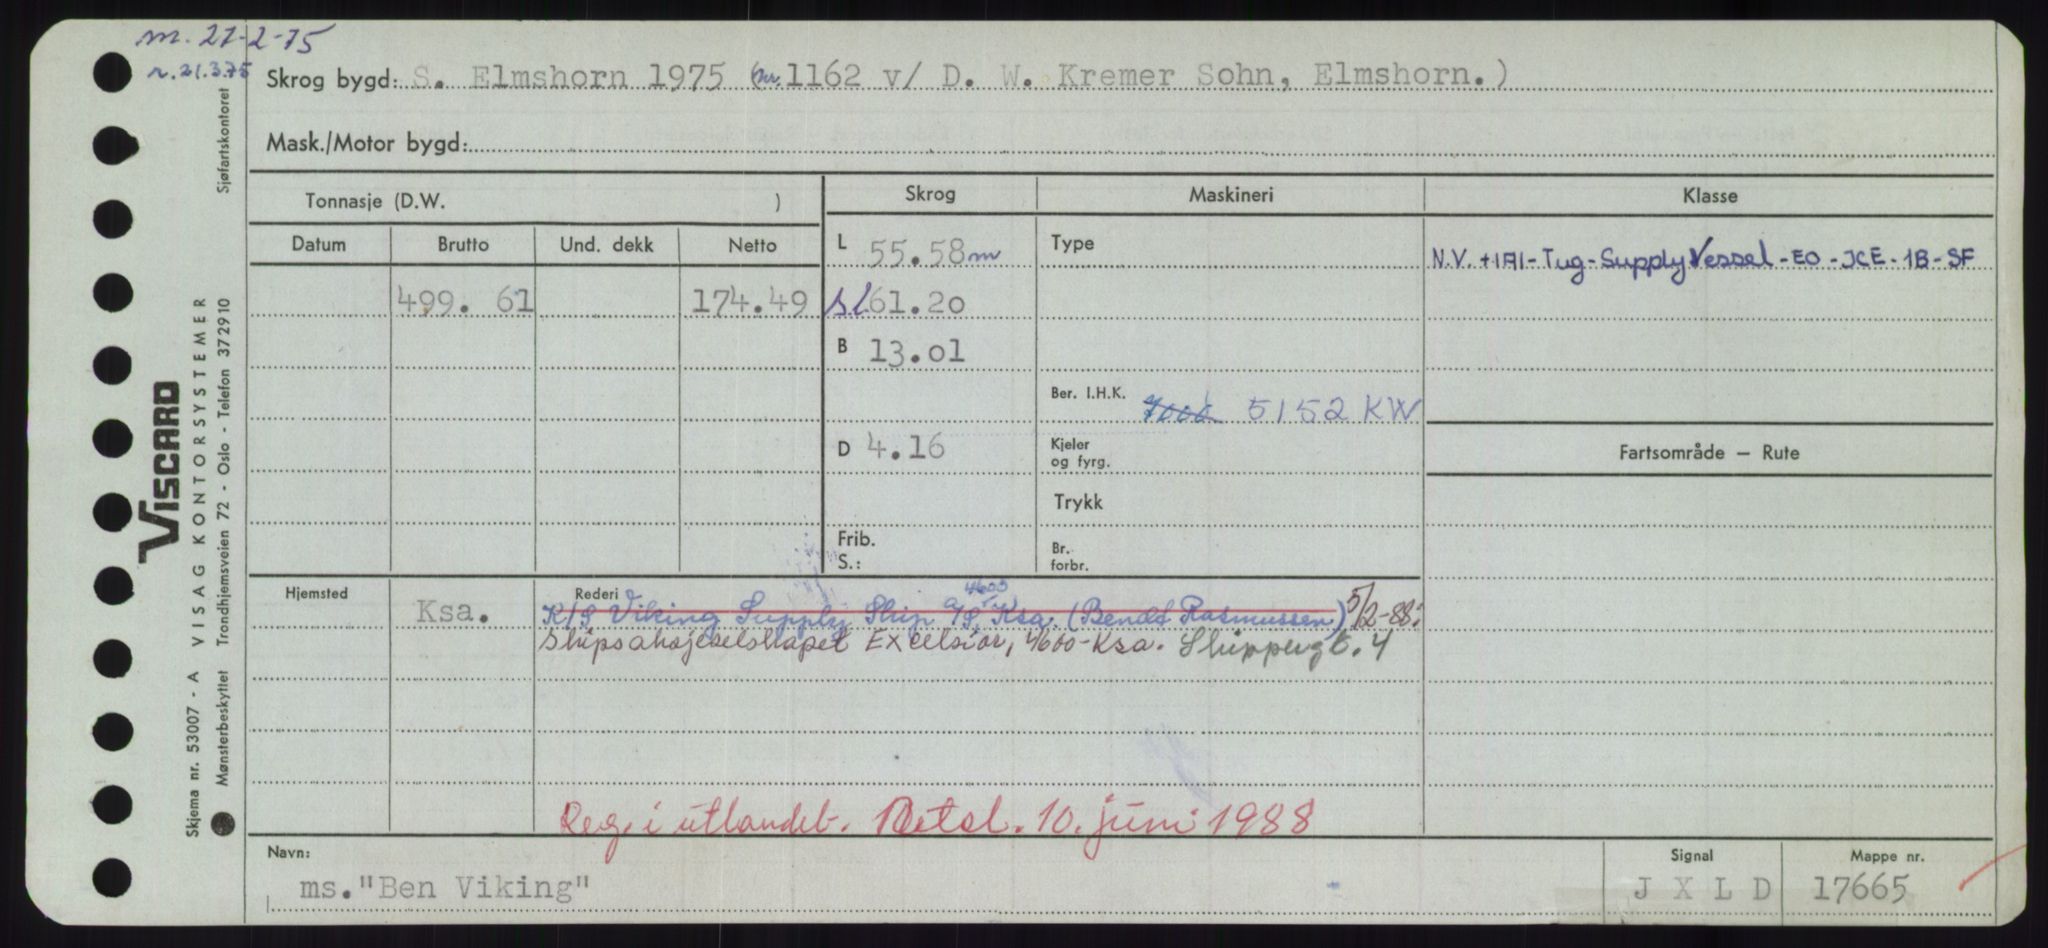 m. 27-2-75
r. 21.3.75
Skrog bygd: S. Elmshorn 1975 (nr. 1162 v/ D. W. Kremer Sohn, Elmshorn.)
Mask./Motor bygd:
Tonnasje (D.W. )
Skrog
Maskineri
Klasse
Datum Brutto Und. dekk Netto
L 55.58 m
Type
N.V. +1A1-Tug-Supply Vessel-EO-ICE-1B-SF
499. 61 174.49
s.l. 61.20
B 13.01
Ber. I.H.K. 7000 5152 KW
D 4.16
Kjeler og fyrg.
Fartsområde — Rute
Trykk
Frib. S.:
Br. forbr.
Hjemsted Ksa.
Rederi
K/S Viking Supply Ship A/S, 4600 Ksa. (Bendt Rasmussen) 5/2-88:
Skipsaksjeselskapet Excelsior, 4600-Ksa. Skippergt. 4
Reg. i utlandet. Detsl. 10. juni 1988
Navn:
ms. "Ben Viking"
Signal
J X L D
Mappe nr.
17665
VISCARD
Skjema nr. 53007 - A VISAG KONTORSYSTEMER
Mønsterbeskyttet Trondhjemsveien 72 - Oslo - Telefon 372910
Sjøfartskontoret